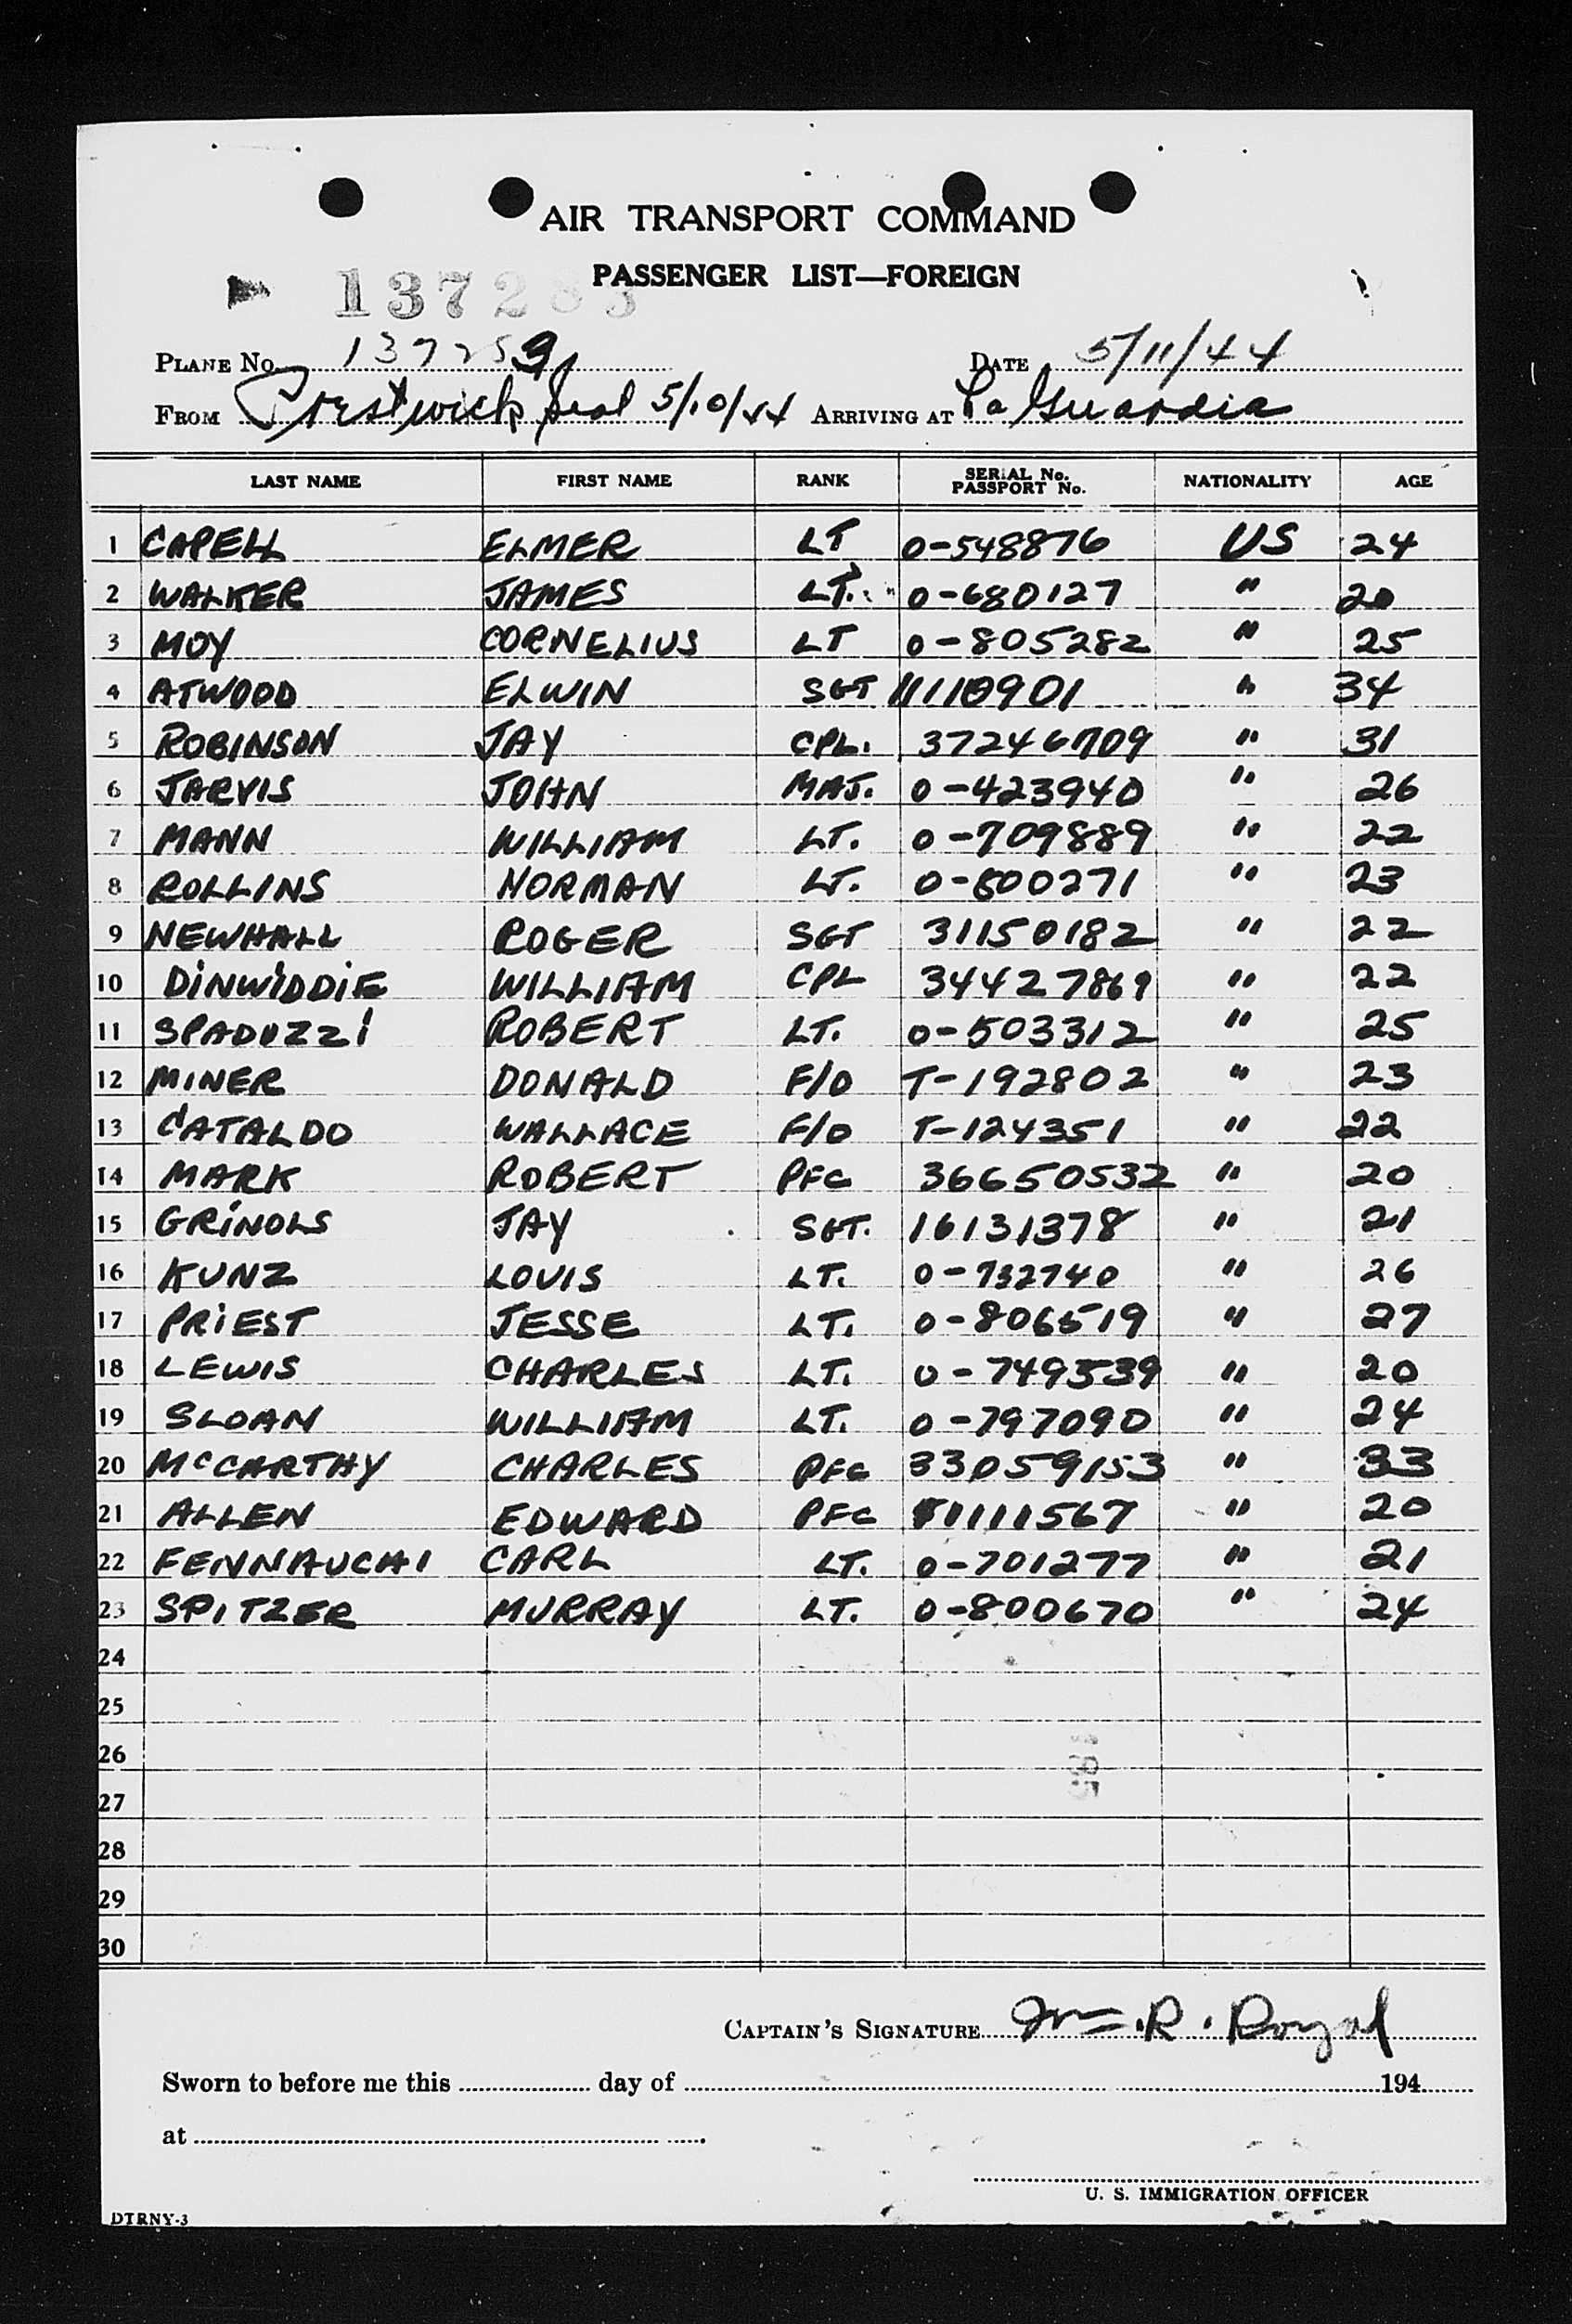 AIR TRANSPORT COMMAND
PASSENGER LIST—FOREIGN
137283
PLANE No. 137283 DATE 5/11/44
FROM Prestwick Scot 5/10/44 ARRIVING AT La Guardia
LAST NAME FIRST NAME RANK SERIAL No. PASSPORT No. NATIONALITY AGE
1 CAPELL ELMER LT 0-548876 US 24
2 WALKER JAMES LT. 0-680127 " 20
3 MOY CORNELIUS LT 0-805282 " 25
4 ATWOOD ELWIN SGT 11110901 " 34
5 ROBINSON JAY CPL. 37246709 " 31
6 JARVIS JOHN MAJ. 0-423940 " 26
7 MANN WILLIAM LT. 0-709889 " 22
8 ROLLINS NORMAN LT. 0-800271 " 23
9 NEWHALL ROGER SGT 31150182 " 22
10 DINWIDDIE WILLIAM CPL 34427869 " 22
11 SPADUZZI ROBERT LT. 0-503312 " 25
12 MINER DONALD F/O T-192802 " 23
13 CATALDO WALLACE F/O T-124351 " 22
14 MARK ROBERT PFC 36650532 " 20
15 GRINOLS JAY SGT. 16131378 " 21
16 KUNZ LOUIS LT. 0-732740 " 26
17 PRIEST JESSE LT. 0-806519 " 27
18 LEWIS CHARLES LT. 0-749539 " 20
19 SLOAN WILLIAM LT. 0-797090 " 24
20 McCARTHY CHARLES PFC 33059153 " 33
21 ALLEN EDWARD PFC 11111567 " 20
22 FENNAUCHI CARL LT. 0-701277 " 21
23 SPITZER MURRAY LT. 0-800670 " 24
24
25
26
27
28
29
30
CAPTAIN'S SIGNATURE Wm. R. Royal
Sworn to before me this day of 194
at
U. S. IMMIGRATION OFFICER
DTRNY-3